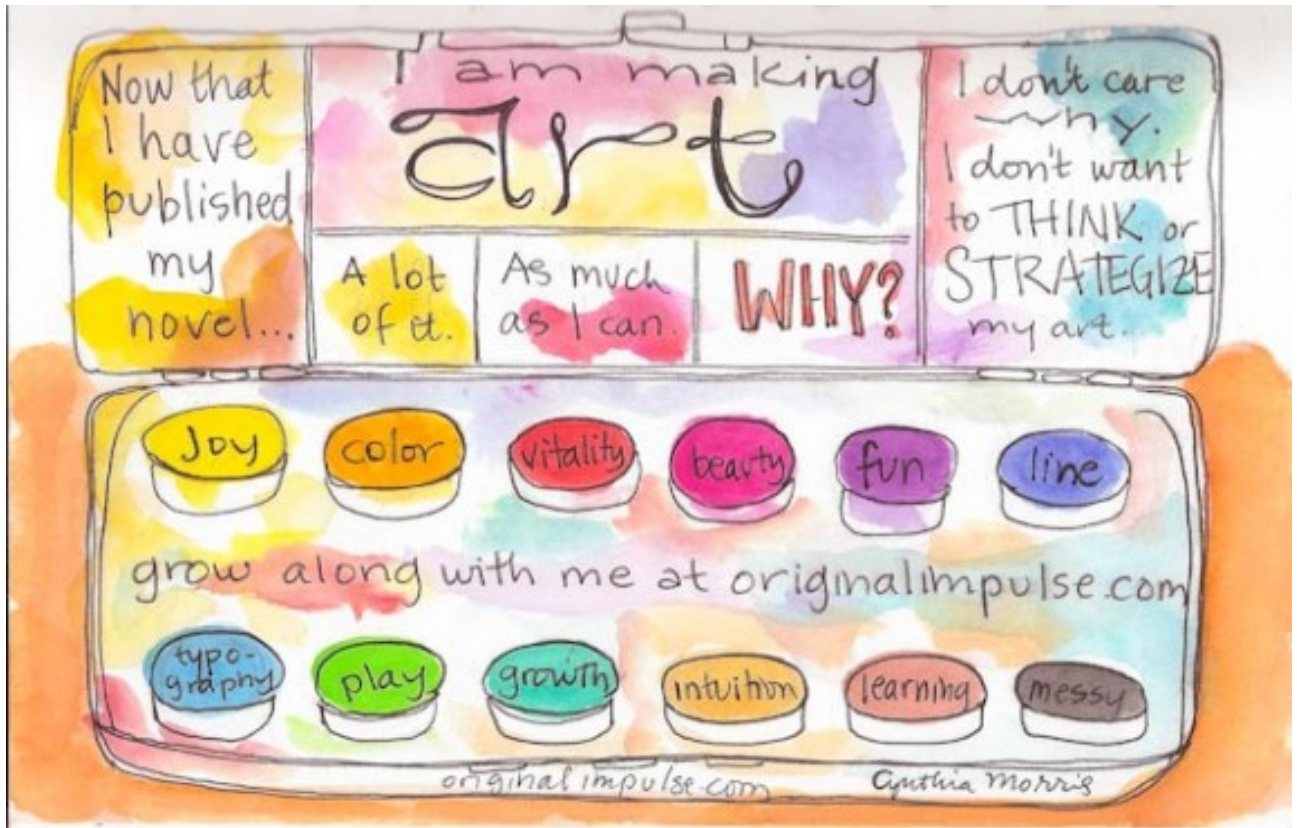 Now that
I have
published
my
novel...
I am making
art
A lot
of it.
As much
as I can.
WHY?
I don't care
why.
I don't want
to THINK or
STRATEGIZE
my art.
Joy
color
vitality
beauty
fun
line
grow along with me at originalimpulse.com
typo-
graphy
play
growth
intuition
learning
messy
originalimpulse.com
Cynthia Morris